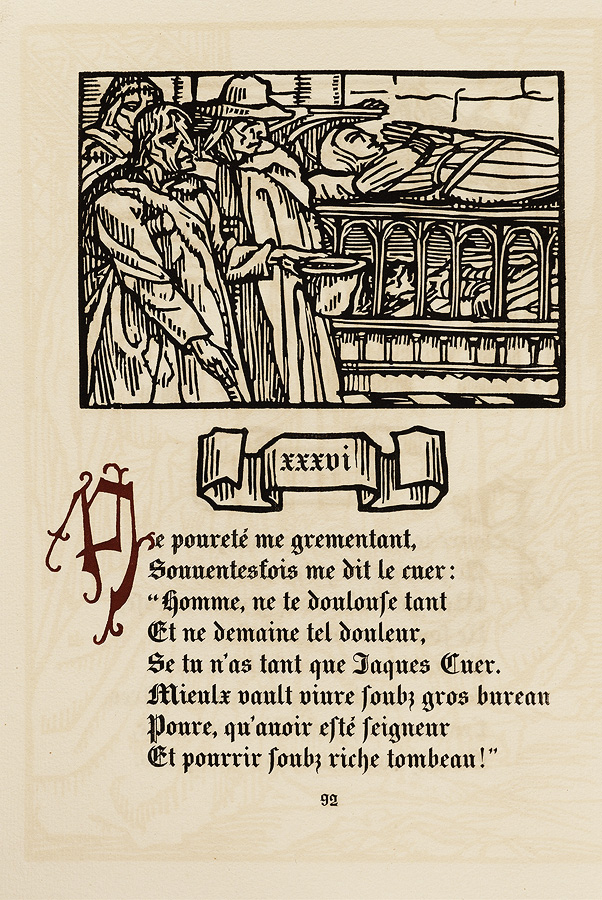 xxxvi
De poureté me grementant,
Souuentesfois me dit le cuer:
“Homme, ne te doulouſe tant
Et ne demaine tel douleur,
Se tu n'as tant que Jaques Cuer.
Mieulx vault viure ſoubz gros bureau
Poure, qu'auoir eſté ſeigneur
Et pourrir ſoubz riche tombeau!”
92